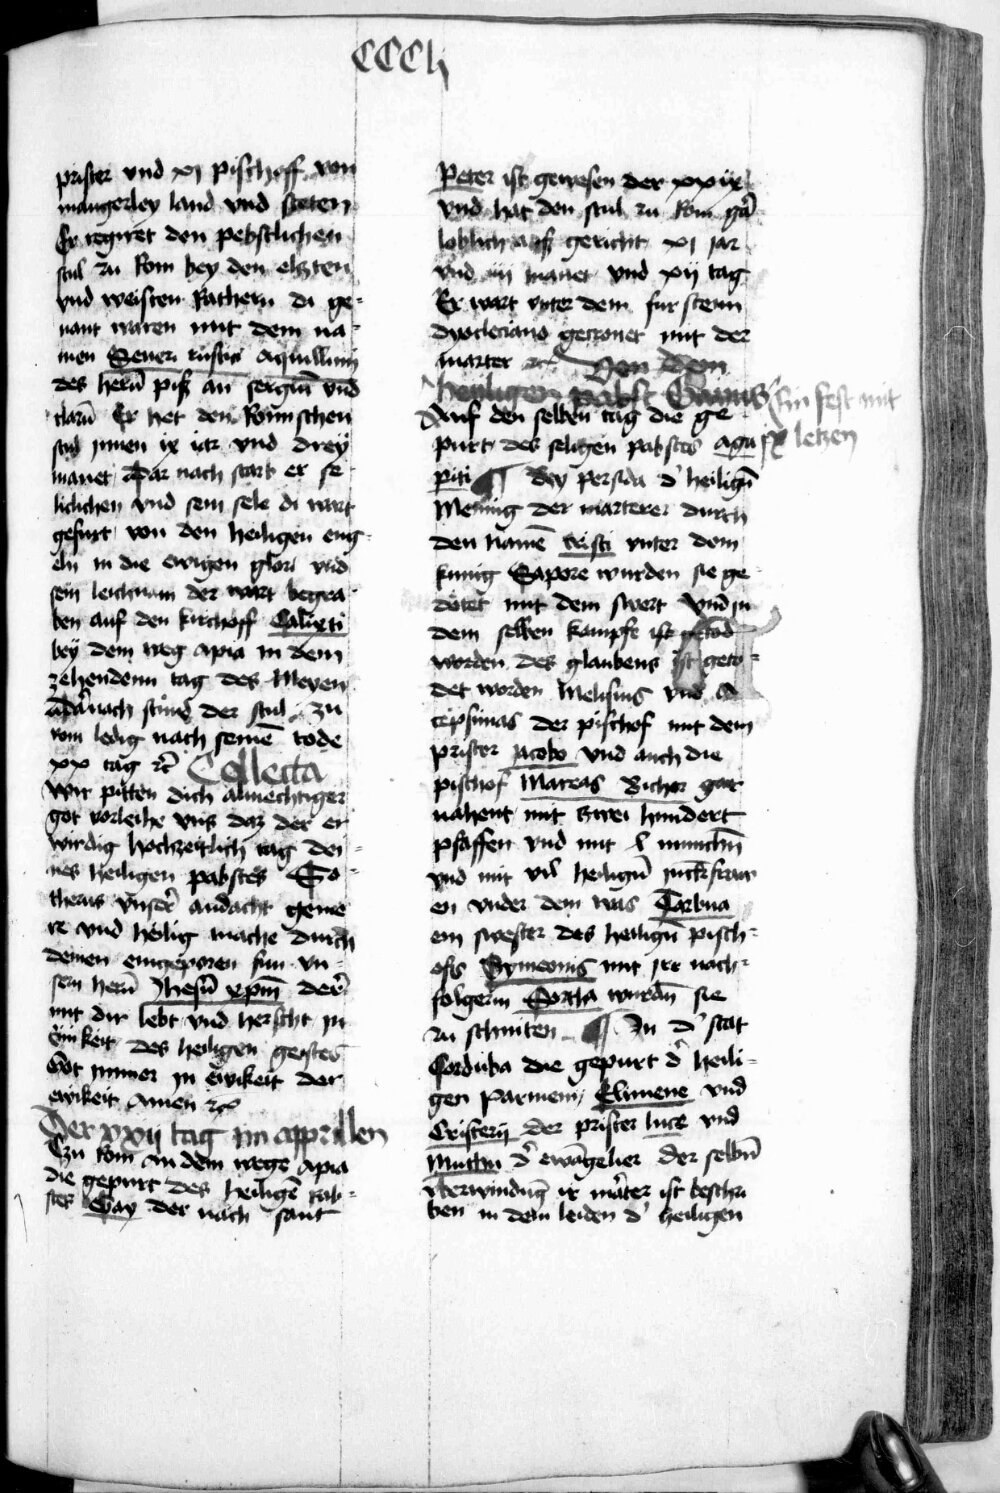 CCCLj
prister vnd xj pischoff von
mangerley land vnd steten
Er regiret den pebstlichen
stul zu Rom bey den elsten
vnd weisten Rathern di ge-
nant waren mit dem na-
men Seuer rustici aquillinj
des herñ pis an sergiũ vnd
clarũ Er het den Romschen
stul jnnen ix iar vnd drey
manet Dar nach starb er se
liclichen vnd sein sele di wart
gefurt von den heiligen eng-
eln in die ewigen glori vnd
sein leichnam der wart begra-
ben auf den kirchoff Calixti
bey dem weg apia in dem
zehendenn tag des Meyen
darnach stund der stul zu
rom ledig nach seinẽ tode
xx tag ꝛc̃ Collecta
Wir pitten dich almechtiger
got vorleihe vns daz der er
wirdig hochzeitlich tag dei-
nes heiligen pabstes So-
therus vnser andacht gemer
re vnd heilig mache durch
deinen eingeporen sun vn-
sern herñ Jhesũ xp̃m der
mit dir lebt vnd herscht in
einikeit des heiligen geistes
Got ymmer in ewikeit der
ewikeit Amen ꝛc
Der xxij tag im apprillen
Czu Rom an dem wege apia
die gepurt des heiligẽ bab-
stes Gay der nach sant
Peter ist gewesen der xxix
Vnd hat den stul zu Rom gãr
loblich aus gericht xj jar
vnd iiij manet vnd xij tag
Er wart vnter dem fursten
dyocleciano gecronet mit der
marter ꝛc Von dem
heiligen pabst Gaius Ein fest mit
Auf den selben tag die ge-
ix letzen
purt des seligen pabstes aga
piti ¶ Bey persida d' heiligñ
Mennig der marterer durch
den Namẽ cristi vnter dem
kunig Sapore wurden sie ge-
dotet mit dem swert Vnd in
dem selben kampfe ist getod
worden des glaubens ist geto-
det worden Melisius vnd A
cepsimas der pischof mit dem
prister jacobo vnd auch die
pischof Mareas Bichor gar
nahent mit zwei hundert
pfaffen vnd mit l munchñ
vnd mit vil heiligñ junckfraw
en vnder dem was Tarbua
ein swester des heiligñ pisch-
ofs Symeonis mit irr nach-
folgerin Sortha wurdñ sie
zu schniten ¶ In d' stat
Corduba die gepurt d' heili-
gen Parmeni, Elimene vnd
Cristerij der prister luce vnd
Mucii d' ewãgelier der selbñ
vberwindũg ir marter ist beschri
ben in dem leiden d' heiligen